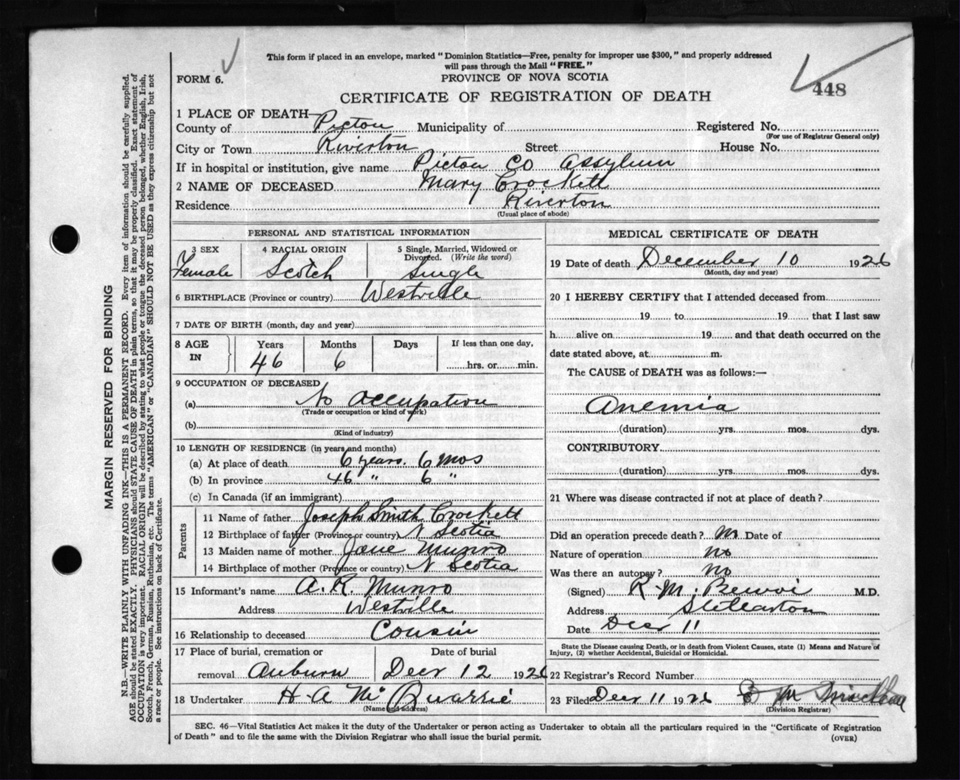 This form if placed in an envelope, marked "Dominion Statistics—Free, penalty for improper use $300," and properly addressed
will pass through the Mail "FREE."
FORM 6.
PROVINCE OF NOVA SCOTIA
448
CERTIFICATE OF REGISTRATION OF DEATH
1 PLACE OF DEATH—
County of Picton Municipality of Registered No.
(For use of Registrar General only)
City or Town Riverton Street House No.
If in hospital or institution, give name Picton Co Assylum
2 NAME OF DECEASED Mary Crockett
Residence Riverton
(Usual place of abode)
PERSONAL AND STATISTICAL INFORMATION
3 SEX 4 RACIAL ORIGIN 5 Single, Married, Widowed or
Divorced. (Write the word)
Female Scotch Single
6 BIRTHPLACE (Province or country) Westville
7 DATE OF BIRTH (month, day and year)
8 AGE IN Years Months Days If less than one day,
46 6 hrs. or min.
9 OCCUPATION OF DECEASED
(a) No Accupation
(Trade or occupation or kind of work)
(b)
(Kind of industry)
10 LENGTH OF RESIDENCE (in years and months)
(a) At place of death 6 years. 6 mos
(b) In province 46 " 6 "
(c) In Canada (if an immigrant)
Parents
11 Name of father Joseph Smith Crockett
12 Birthplace of father (Province or country) N Scotia
13 Maiden name of mother Jane Munro
14 Birthplace of mother (Province or country) N Scotia
15 Informant's name A. R. Munro
Address Westville
16 Relationship to deceased Cousin
17 Place of burial, cremation or Date of burial
removal Auburn Decr 12 1926
18 Undertaker H A Mc Quarrie
(Name and address)
MEDICAL CERTIFICATE OF DEATH
19 Date of death December 10 1926
(Month, day and year)
20 I HEREBY CERTIFY that I attended deceased from
19 to 19 that I last saw
h alive on 19 and that death occurred on the
date stated above, at m.
The CAUSE of DEATH was as follows:—
Anemia
(duration) yrs. mos. dys.
CONTRIBUTORY
(duration) yrs. mos. dys.
21 Where was disease contracted if not at place of death?
Did an operation precede death? no Date of
Nature of operation no
Was there an autopsy? no
(Signed) R. M. M.D.
Address Stellarton
Date Decr 11
State the Disease causing Death, or in death from Violent Causes, state (1) Means and Nature of
Injury, (2) whether Accidental, Suicidal or Homicidal.
22 Registrar's Record Number
23 Filed Decr 11 1926
(Division Registrar)
SEC. 46—Vital Statistics Act makes it the duty of the Undertaker or person acting as Undertaker to obtain all the particulars required in the "Certificate of Registration
of Death" and to file the same with the Division Registrar who shall issue the burial permit.
(OVER)
MARGIN RESERVED FOR BINDING
N.B.—WRITE PLAINLY WITH UNFADING INK—THIS IS A PERMANENT RECORD. Every item of information should be carefully supplied.
AGE should be stated EXACTLY. PHYSICIANS should STATE CAUSE OF DEATH in plain terms, so that it may be properly classified. Exact statement of
OCCUPATION is very important. RACIAL ORIGIN will be described by stating to what people or tongue the deceased person belonged, whether English, Irish,
Scotch, French, German, Russian, Ruthenian, etc. The terms "AMERICAN" or "CANADIAN" SHOULD NOT BE USED as they express citizenship but not
a race or people. See instructions on back of Certificate.